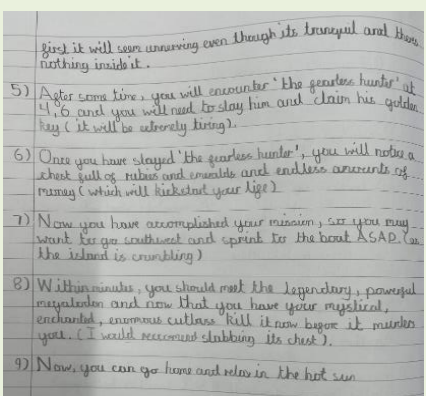 first it will seem unnerving even though its tranquil and theres
nothing inside it.
5) After some time, you will encounter 'the fearless hunter' at
4,6 and you will need to slay him and claim his golden
key (it will be extremely tiring).
6) Once you have slayed 'the fearless hunter', you will notice a
chest full of rubies and emeralds and endless amounts of
money (which will kickstart your life)
7) Now you have accomplished your mission, so you may
want to go southwest and sprint to the boat ASAP. (as
the island is crumbling)
8) Within minutes, you should meet the legendary, powerful
megalodon and now that you have your mystical,
enchanted, enormous cutlass kill it now before it murders
you. (I would reccomend stabbing its chest).
9) Now, you can go home and relax in the hot sun